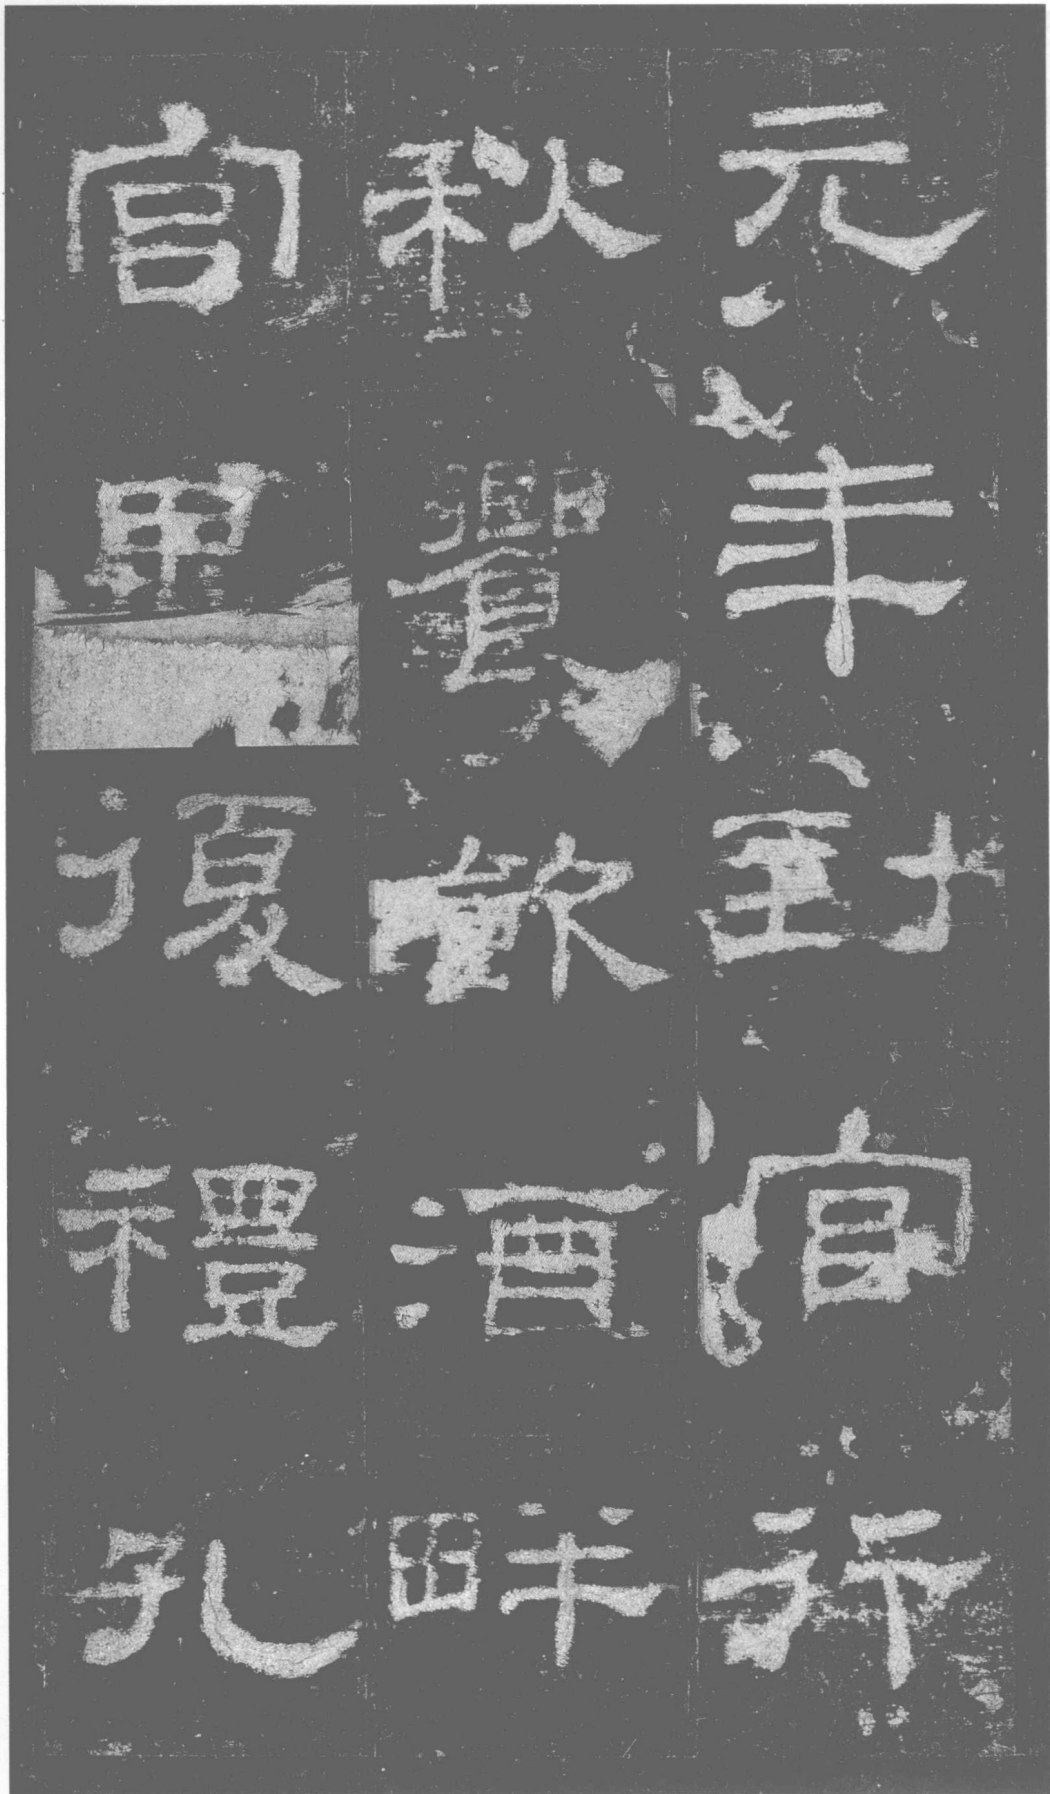 元年到官行
秋饗飲酒畔
宮畢復禮孔